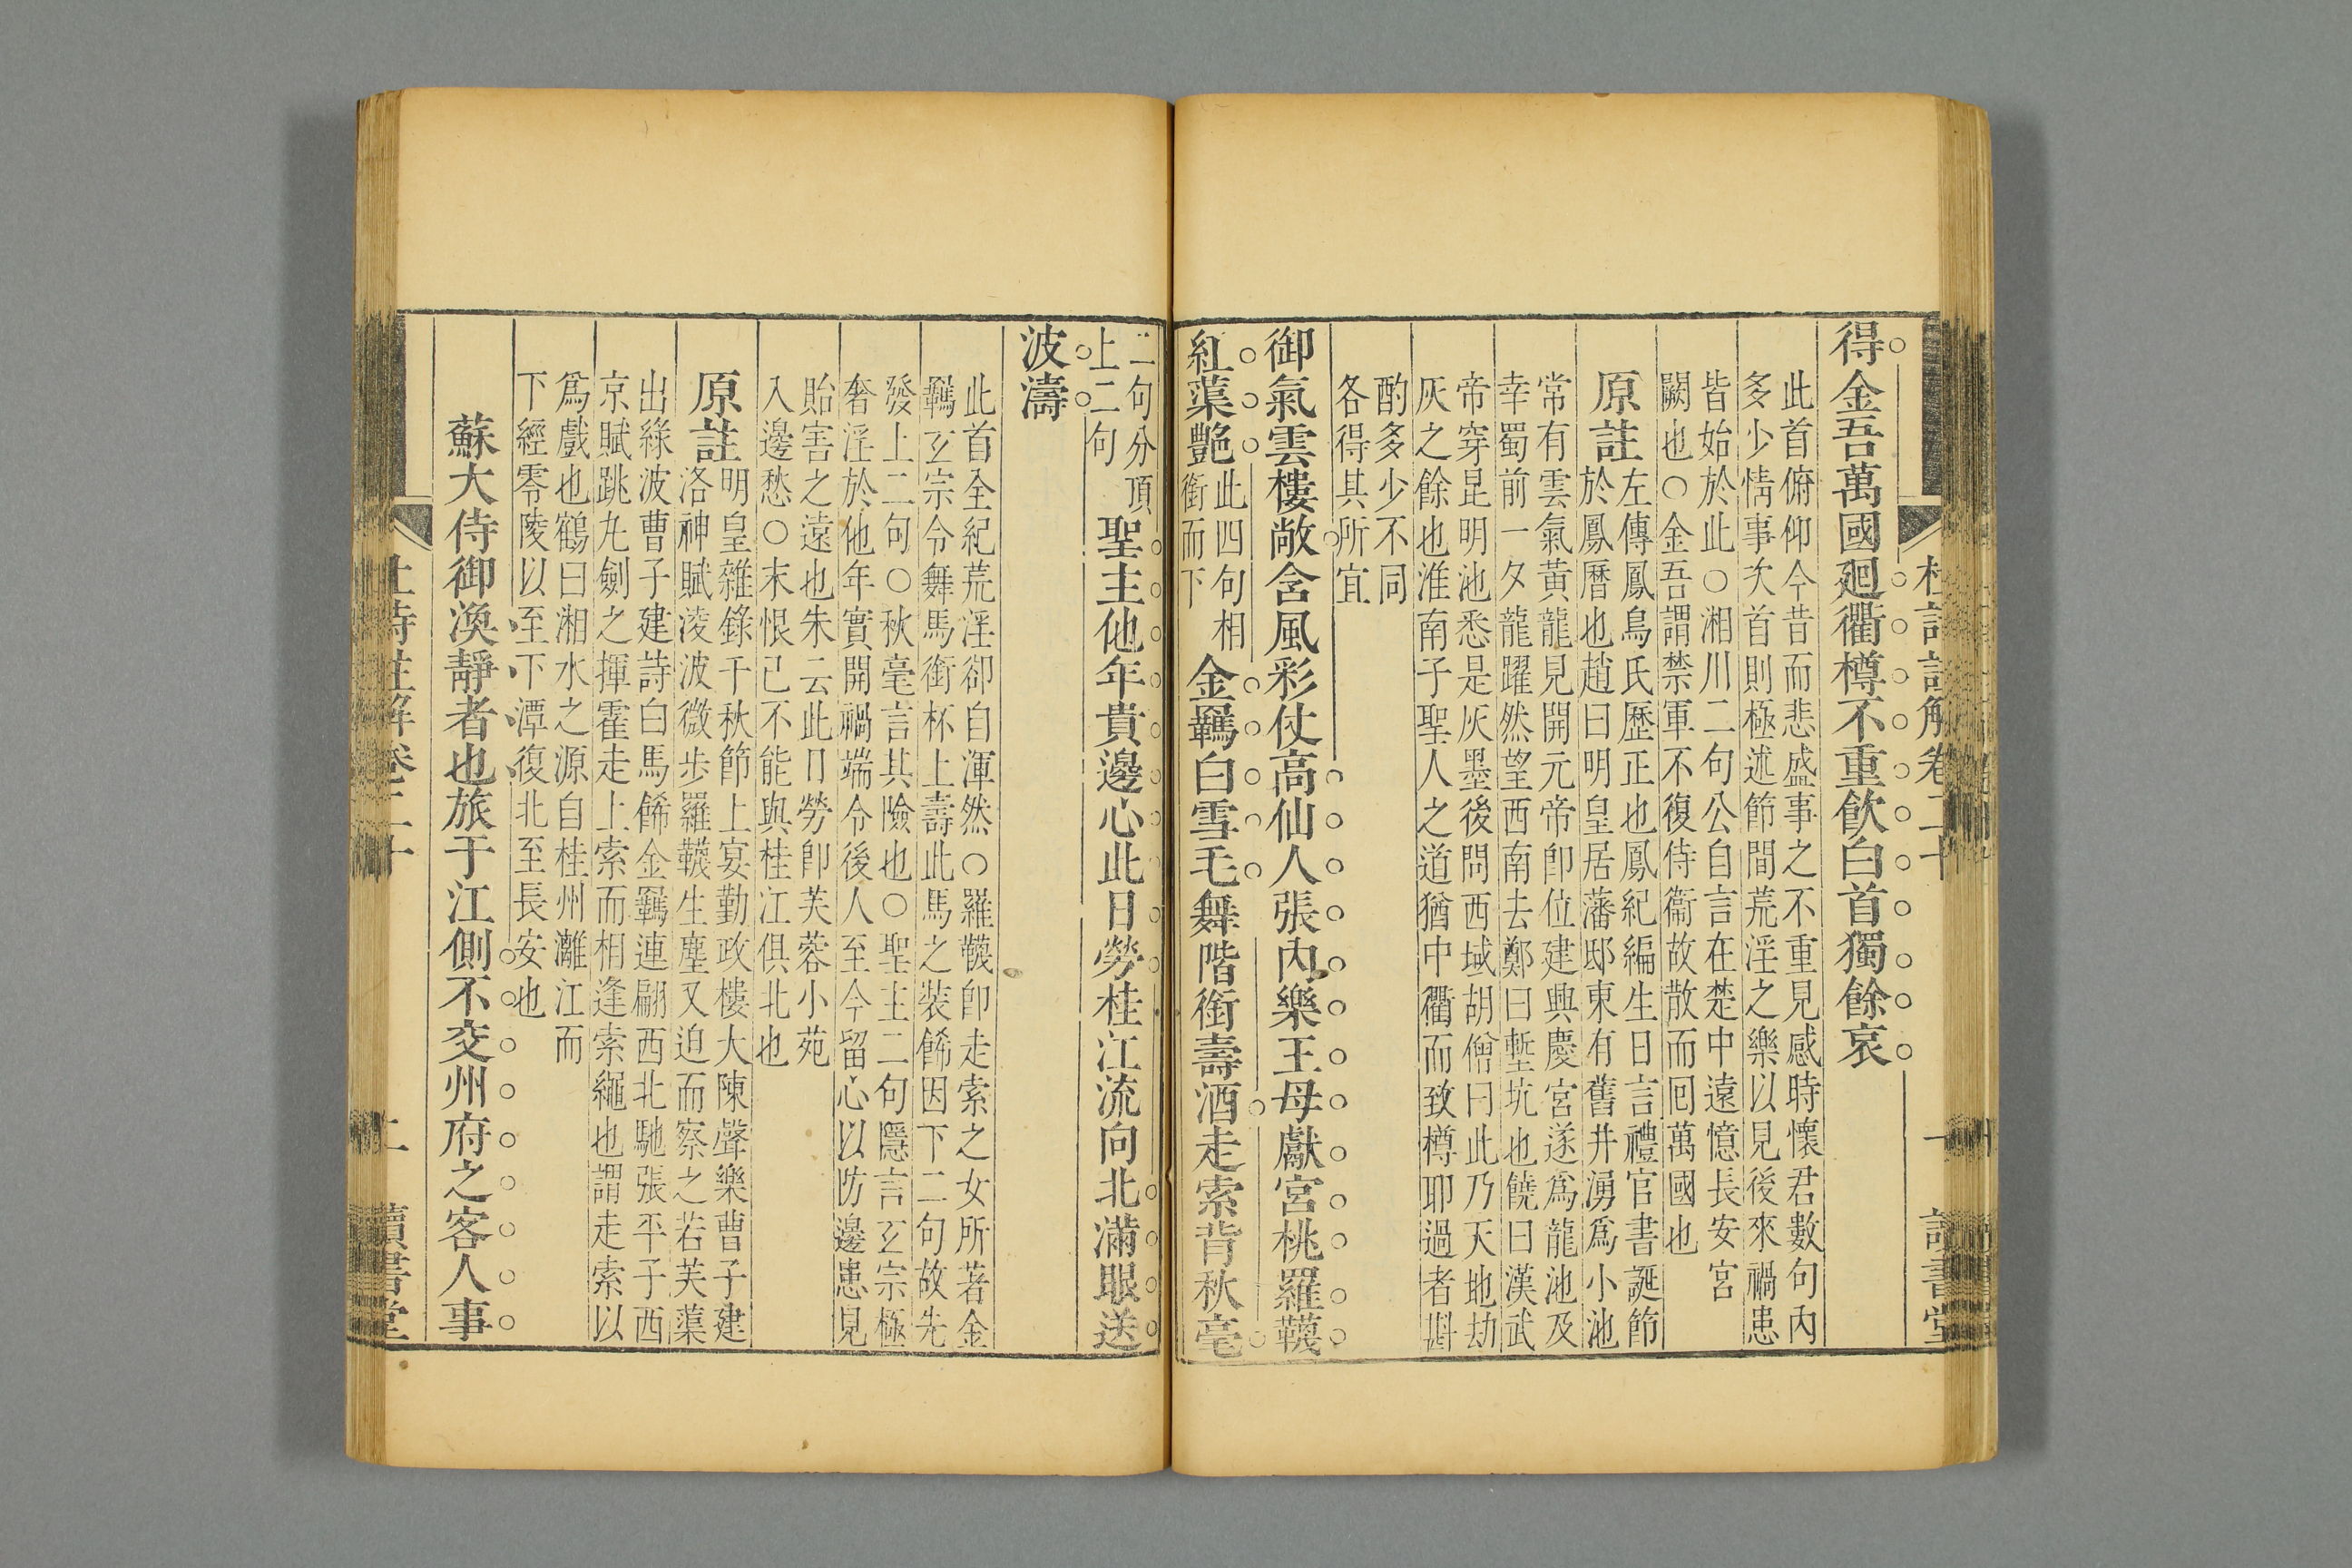 得金吾萬國廻衢樽不重飲白首獨餘哀
此首俯仰今昔而悲盛事之不重見感時懷君數句內
多少情事次首則極述節間荒淫之樂以見後來禍患
皆始於此○湘川二句公自言在楚中遠憶長安宮
闕也○金吾謂禁軍不復侍衞故散而囘萬國也
原註
左傳鳳鳥氏歷正也鳳紀編生日言禮官書誕節
於鳳曆也趙曰明皇居藩邸東有舊井湧爲小池
常有雲氣黃龍見開元帝卽位建興慶宮遂爲龍池及
幸蜀前一夕龍躍然望西南去鄭曰塹坑也饒曰漢武
帝穿昆明池悉是灰墨後問西域胡僧曰此乃天地劫
灰之餘也淮南子聖人之道猶中衢而致樽耶過者斟
酌多少不同
各得其所宜
御氣雲樓敞含風彩仗高仙人張內樂王母獻宮桃羅韈
紅蕖艷
此四句相
銜而下
金羈白雪毛舞階銜壽酒走索背秋毫
二句分頂
上二句
聖主他年貴邊心此日勞桂江流向北滿眼送
波濤
此首全紀荒淫卻自渾然○羅韈卽走索之女所著金
羈玄宗令舞馬銜杯上壽此馬之裝餙因下二句故先
發上二句○秋毫言其險也○聖主二句隱言玄宗極
奢淫於他年實開禍端令後人至今留心以防邊患見
貽害之遠也朱云此日勞卽芙蓉小苑
入邊愁○末恨已不能與桂江俱北也
原註
明皇雜錄千秋節上宴勤政樓大陳聲樂曹子建
洛神賦淩波微步羅韈生塵又迫而察之若芙蕖
出綠波曹子建詩白馬餙金羈連翩西北馳張平子西
京賦跳九劍之揮霍走上索而相逢索繩也謂走索以
爲戲也鶴曰湘水之源自桂州灕江而
下經零陵以至下潭復北至長安也
蘇大侍御渙靜者也旅于江側不交州府之客人事
杜詩註解卷二十
一
讀書堂
杜詩註解卷二十
二
讀書堂